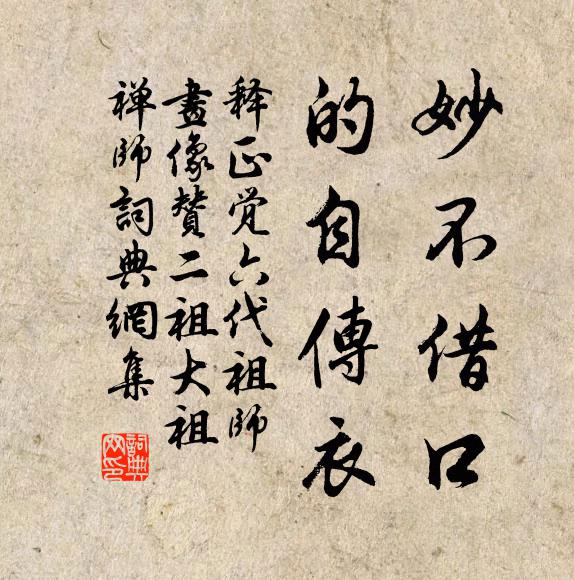 妙不借口
的自傳衣
释正觉六代祖師
畫像贊二祖大祖
禅師詞典網集
詞典网印